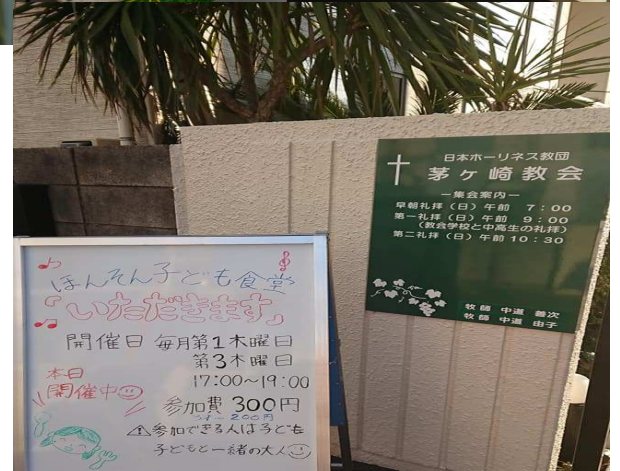 日本ホーリネス教団
茅ヶ崎教会
ー集会案内ー
早朝礼拝(日)午前 7:00
第一礼拝(日)午前 9:00
(教会学校と中高生の礼拝)
第二礼拝(日)午前10:30
牧師 中道 善次
牧師 中道 由子
ほんそん子ども食堂
『いただきます』
開催日 毎月第1木曜日
第3木曜日
17:00〜19:00
本日
開催中
参加費 300円
200円
⚠参加できる人は子どもと
子どもと一緒の大人☺